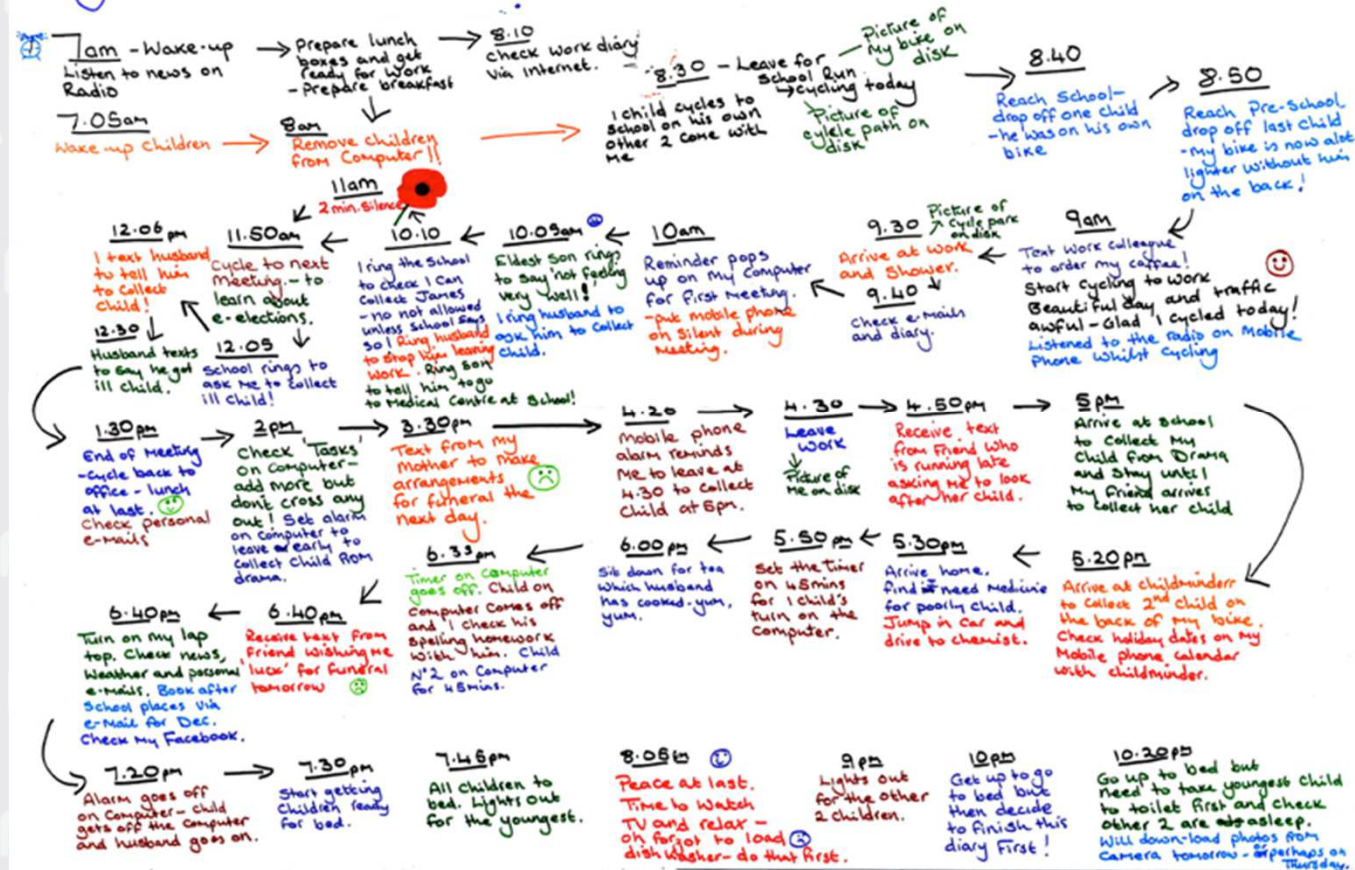 7am - Wake-up
Listen to news on
Radio
Prepare lunch
boxes and get
ready for work
- Prepare breakfast
8.10
Check work diary
via Internet.
8.30 - Leave for
School Run
↳ cycling today
Picture of
My bike on
disk
Picture of
cycle path on
disk
1 child cycles to
school on his own
other 2 come with
me
8.40
Reach School-
drop off one child
- he was on his own
bike
8.50
Reach Pre-School
drop off last child
- my bike is now alot
lighter without him
on the back!
7.05am
Wake up Children
8am
Remove children
from Computer!!
9am
Text work colleague
to order my coffee!
Start cycling to work
Beautiful day and traffic
awful - Glad I cycled today!
Listened to the radio on Mobile
Phone whilst cycling
9.30
Picture of
cycle park
on disk
Arrive at work
and Shower.
9.40
Check e-mails
and diary.
10am
Reminder pops
up on my computer
for first meeting.
- put mobile phone
on silent during
meeting.
10.05am
Eldest son rings
to say 'not feeling
very well!
I ring husband to
ask him to collect
child.
10.10
I ring the School
to check I can
collect James
- no not allowed
unless school says
so! Ring husband
to stop him leaving
work. Ring son
to tell him to go
to Medical Centre at School!
11am
2 min. silence
11.50am
Cycle to next
meeting. - to
learn about
e-elections.
12.05
School rings to
ask me to collect
ill child!
12.06 pm
I text husband
to tell him
to collect
child!
12.30
Husband texts
to say he got
ill child.
1.30pm
End of Meeting
- cycle back to
office - lunch
at last.
Check personal
e-mails
2pm
Check 'Tasks'
on computer-
add more but
don't cross any
out! Set alarm
on computer to
leave early to
collect child from
drama.
3.30pm
Text from my
mother to make
arrangements
for funeral the
next day.
4.20
Mobile phone
alarm reminds
me to leave at
4.30 to collect
child at 5pm.
4.30
Leave
work
Picture of
me on disk
4.50pm
Receive text
from friend who
is running late
asking me to look
after her child.
5pm
Arrive at school
to collect my
child from Drama
and stay until
my friend arrives
to collect her child
5.20pm
Arrive at childminder
to collect 2nd child on
the back of my bike.
Check holiday dates on my
Mobile phone calendar
with childminder.
5.30pm
Arrive home,
find need medicine
for poorly child.
Jump in car and
drive to chemist.
5.50pm
Set the timer
on 45mins
for 1 child's
turn on the
computer.
6.00pm
Sit down for tea
which husband
has cooked - yum,
yum.
6.35pm
Timer on Computer
goes off. Child on
computer comes off
and I check his
spelling homework
with him. Child
No 2 on computer
for 45mins.
6.40pm
Receive text from
friend wishing me
'luck' for funeral
tomorrow
6.40pm
Turn on my lap
top. Check news,
weather and personal
e-mails. Book after
school places via
e-mail for Dec.
Check my Facebook.
7.20pm
Alarm goes off
on computer - child
gets off the computer
and husband goes on.
7.30pm
Start getting
children ready
for bed.
7.45pm
All children to
bed. Lights out
for the youngest.
8.05
Peace at last.
Time to watch
TV and relax -
oh forgot to load
dishwasher - do that first.
9pm
Lights out
for the other
2 children.
10pm
Get up to go
to bed but
then decide
to finish this
diary first!
10.20pm
Go up to bed but
need to take youngest child
to toilet first and check
other 2 are asleep.
Will down-load photos from
camera tomorrow - or perhaps on
Thursday.